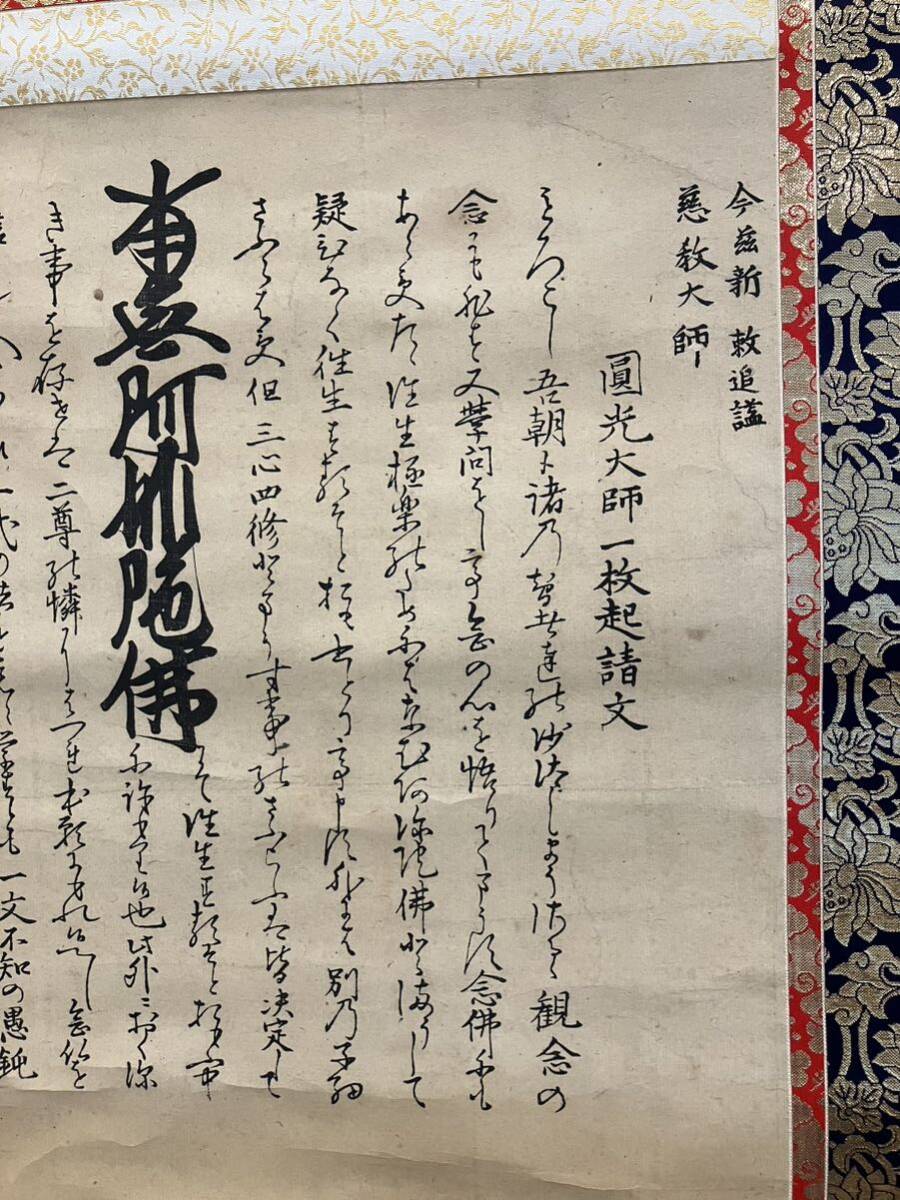 今茲新 敕追諡
慈教大師
圓光大師一枚起請文
もろこし吾朝に諸乃智者達能沙汰し申さるゝ観念の
念にも非す又學問をして念の心を悟りて申す念佛にも
あらす たゝ往生極楽能ためにはなむ阿弥陀佛と申して
疑ひなく往生するそと思とりて申す外には別乃子細
さふらはす但三心四修と申す事能さふらふは皆決定して
南無阿弥陀佛
にて往生するそと思ふ中
に籠り候也此外ニおく深
き事を存せは二尊能憐にはつれ本願にもれ候へし念佛を
一代の法を 學とも一文不知の愚鈍